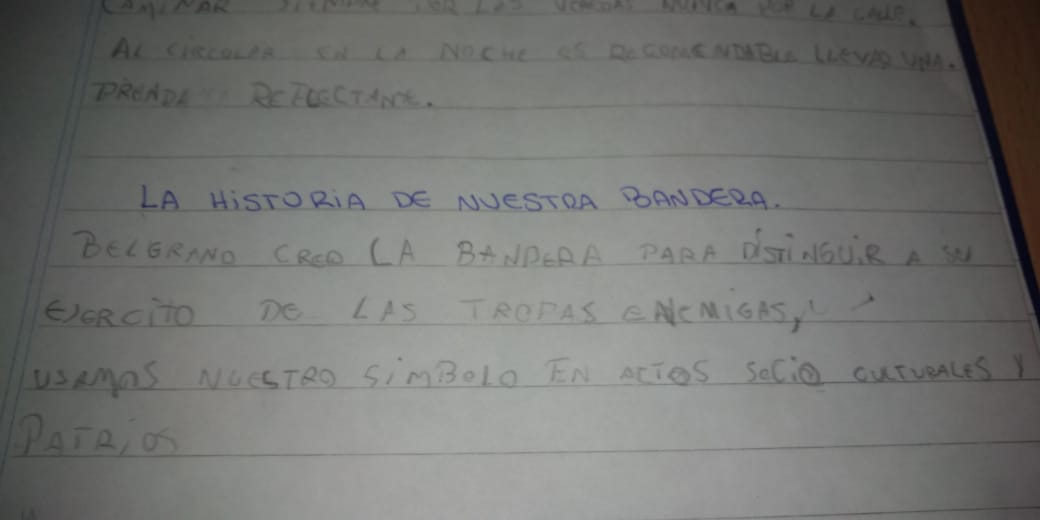 CAMINAR SIEMPRE POR LAS VEREDAS NUNCA POR LA CALLE.
AL CIRCULAR EN LA NOCHE ES RECOMENDABLE LLEVAR UNA.
PRENDA REFLECTANTE.
LA HiSTORiA DE NUESTRA BANDERA.
BELGRANO CREO LA BANDERA PARA DiSTiNGUiR A SU
EJERCiTO DE LAS TROPAS ENEMIGAS,
USAMOS NUESTRO SiMBOLO EN ACTOS SOCiO CULTURALES Y
PATRiOS